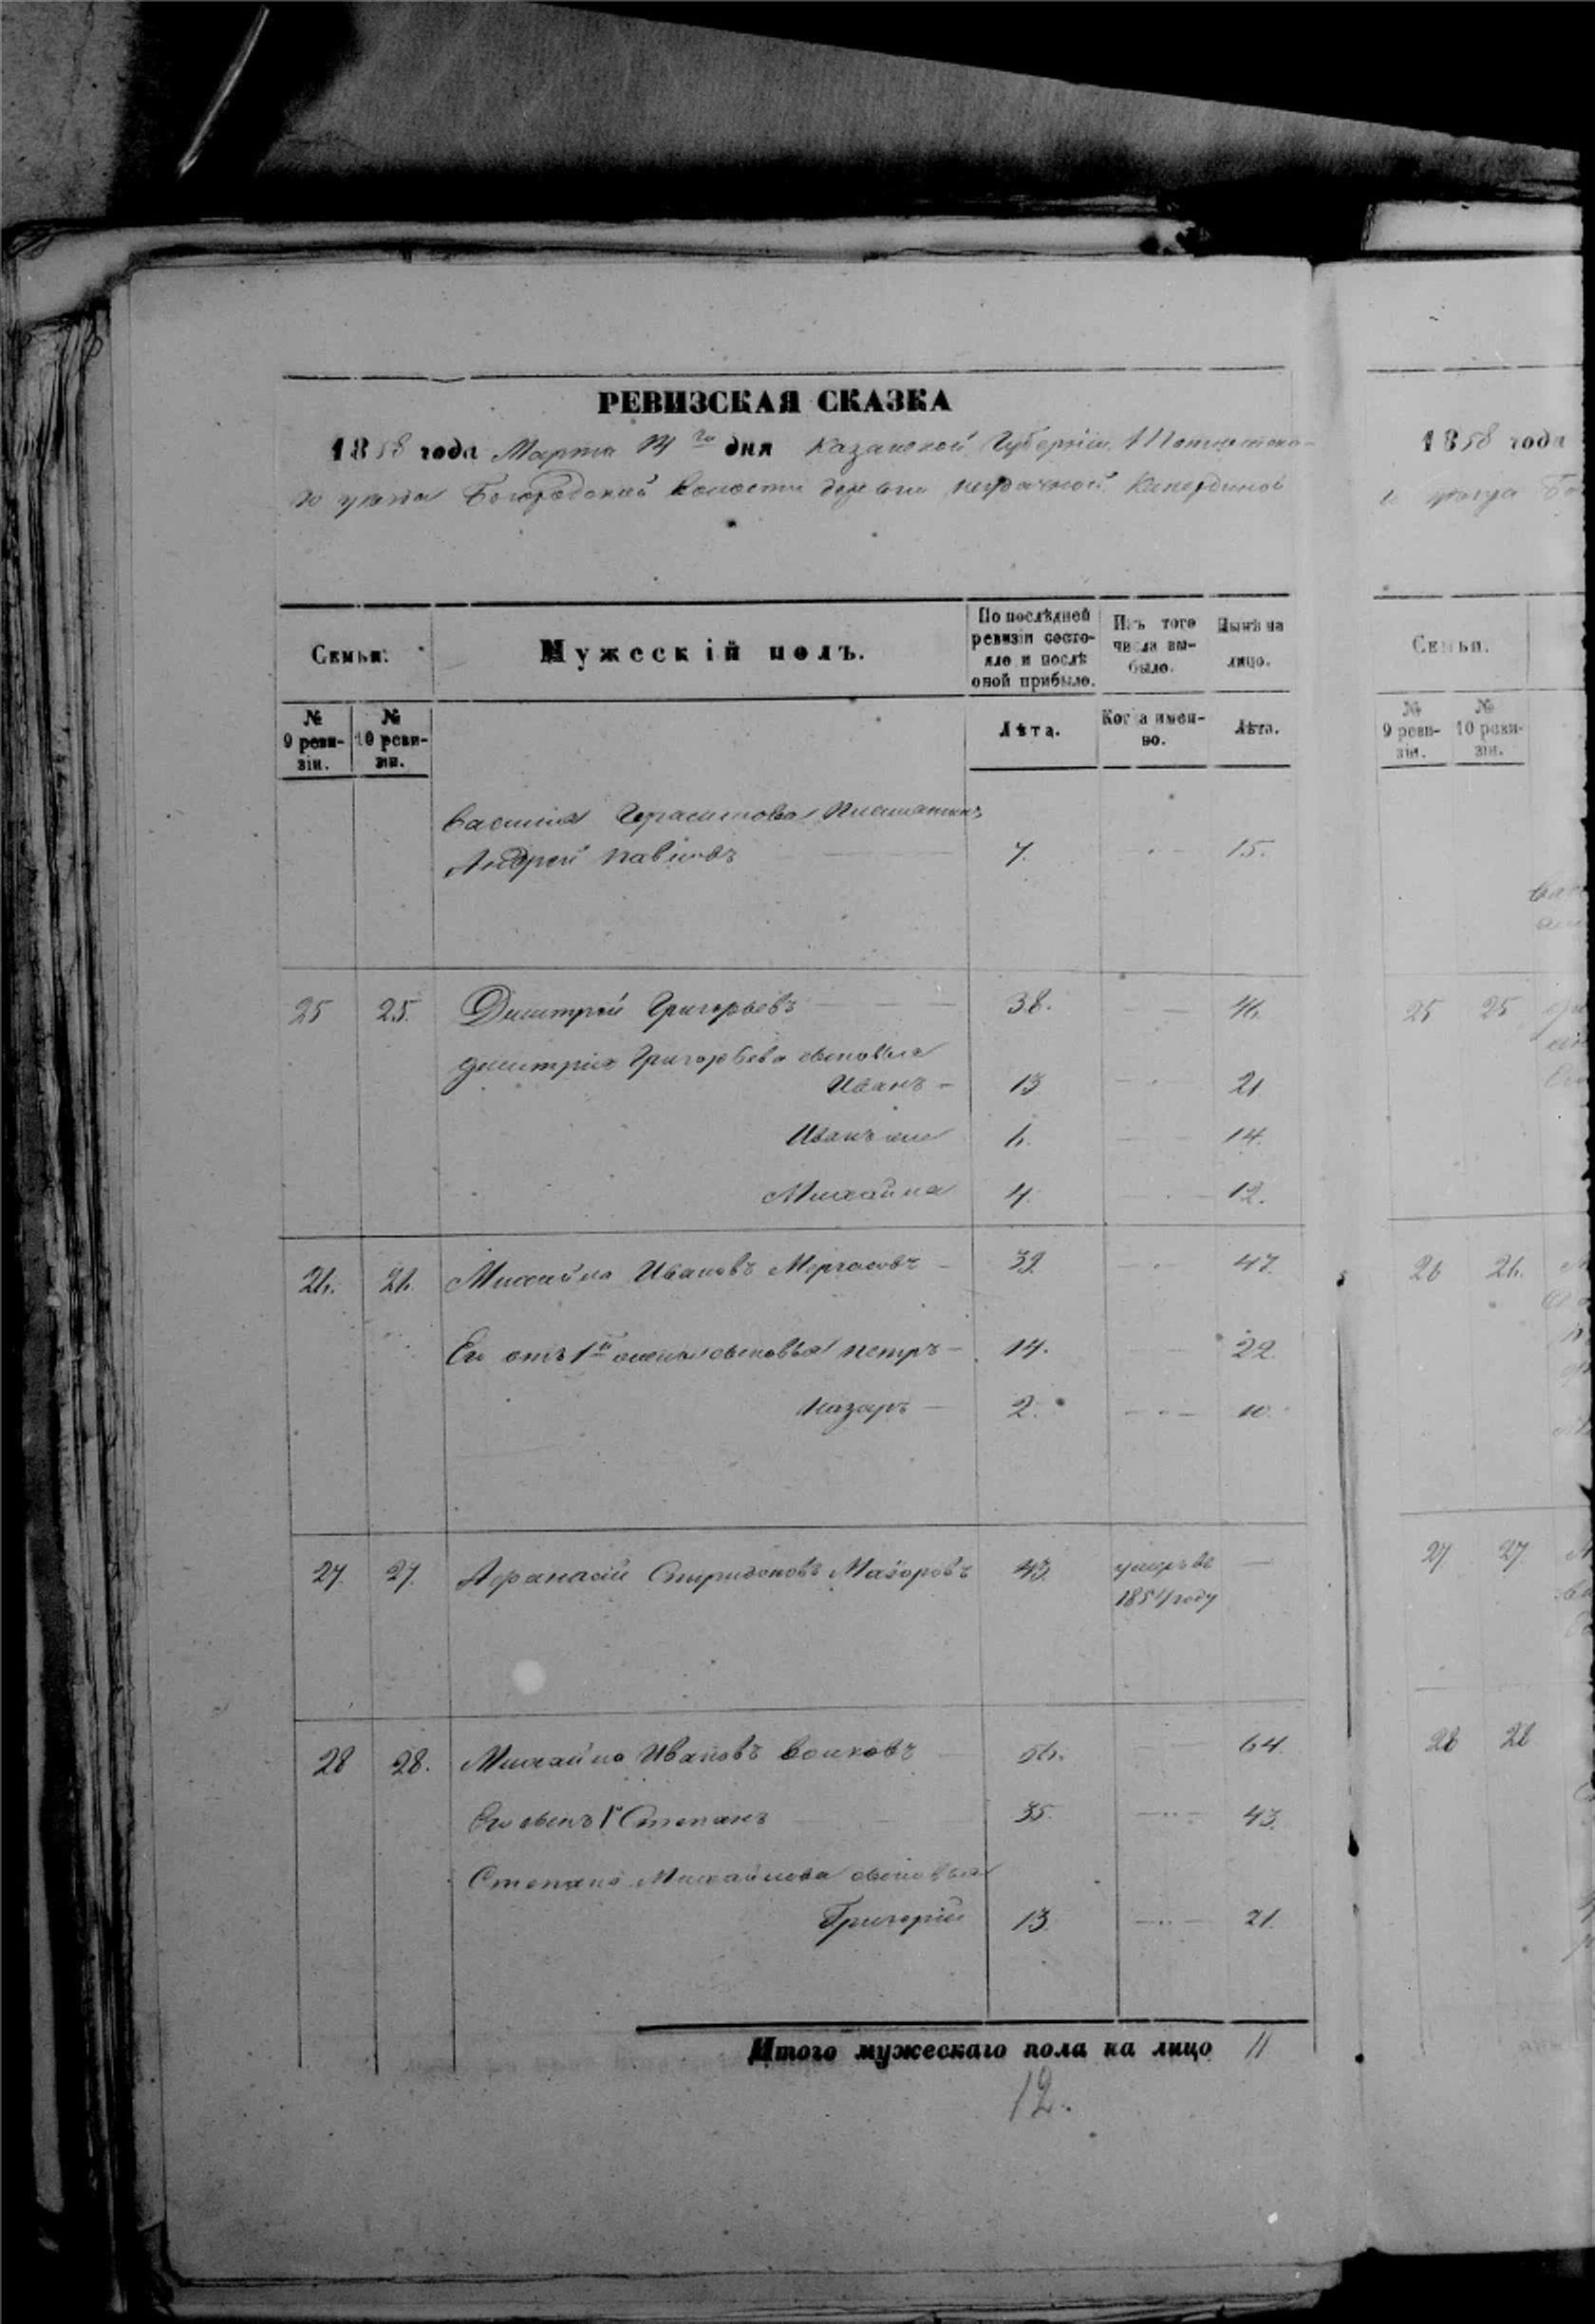 РЕВИЗСКАЯ СКАЗКА
1858 года Марта 14го дня Казанской Губерніи,
уѣзда Богородской волости деревни
Семьи:
Мужескій полъ.
По послѣдней ревизіи состояло и послѣ оной прибыло.
Изъ того числа выбыло.
Нынѣ на лицо.
№ 9 ревизіи.
№ 10 ревизіи.
Лѣта.
Когда именно.
Лѣта.
Василія Герасимова
Андрей 7. 15.
25 25. Дмитрій Григорьевъ 38. 46.
Дмитрія Григорьева сыновья
Иванъ 13 21
Иванъ же 6. 14.
Михайла 4. 12.
26. 26. Михайла Ивановъ 39. 47.
Его отъ 1й жены сыновья Петръ 14. 22.
Назаръ 2. 10.
27. 27. Афанасій Спиридоновъ Маіоровъ 43. умеръ въ
году
28 28. Михайла Ивановъ Волковъ 56. 64.
Его сынъ 1й Степанъ 35. 43.
Степана Михайлова сыновья
Григорій 13. 21.
Итого мужескаго пола на лицо 11
12.
1858 года
уѣзда
Семьи.
№ 9 ревизіи.
№ 10 ревизіи.
25 25
26 26.
27. 27.
28 28